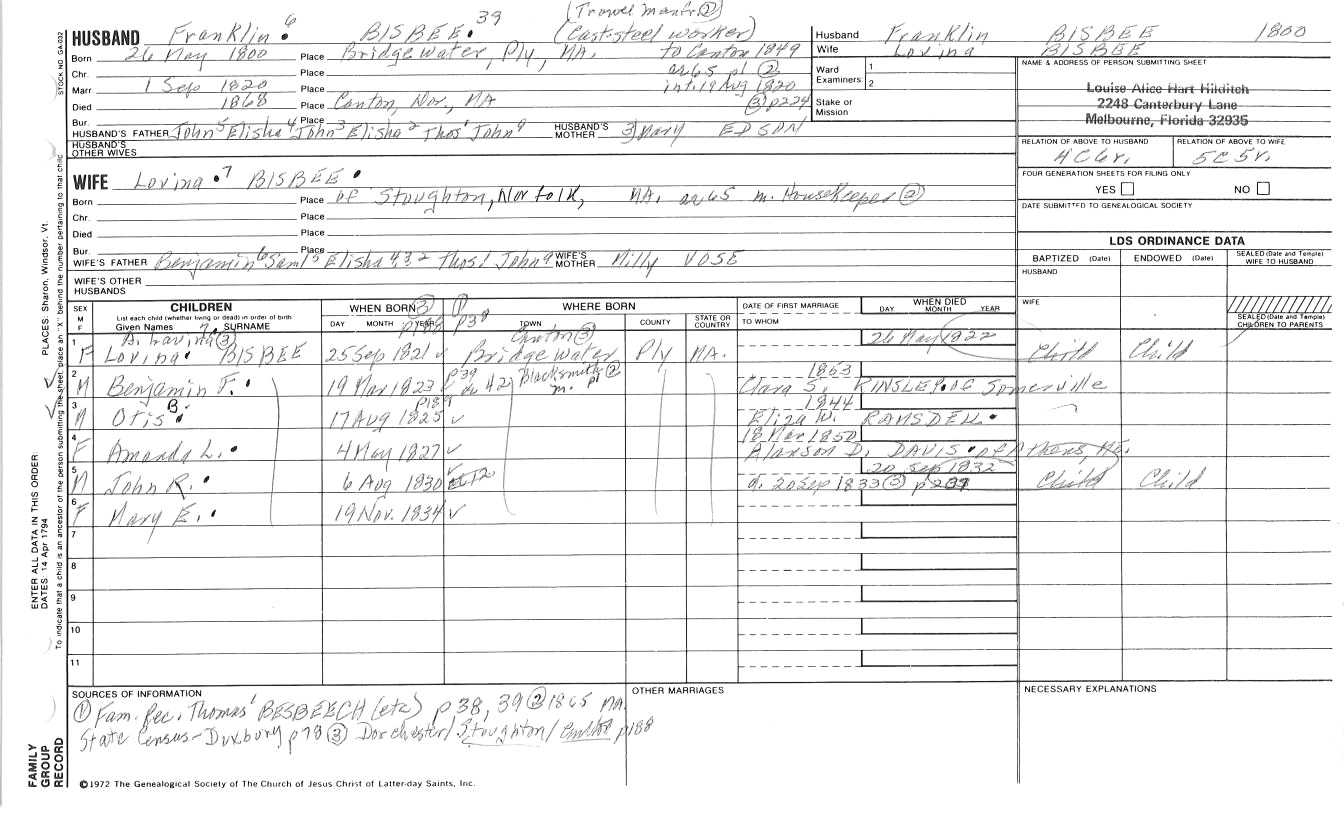 (Trowel manfr ②)
HUSBAND Franklin 6 BISBEE 39 (Cast-steel worker)
Born 26 May 1800 Place Bridgewater, Ply, MA. to Canton 1849
Chr. Place a 65 pl ②
Marr. 1 Sep 1820 Place int. 19 Aug 1820
Died 1868 Place Canton, Nor, MA ③ p 224
Bur. Place
HUSBAND'S FATHER John 5 Elisha 4 John 3 Elisha 2 Thos 1 John a HUSBAND'S MOTHER 3) Mary EDSON
HUSBAND'S OTHER WIVES
WIFE Lovina 7 BISBEE
Born Place of Stoughton, Norfolk, MA. a 65 m. Housekeeper ②
Chr. Place
Died Place
Bur. Place
WIFE'S FATHER Benjamin 6 Saml 5 Elisha 4,3,2 Thos 1 John a WIFE'S MOTHER Milly VOSE
WIFE'S OTHER HUSBANDS
Husband Franklin BISBEE 1800
Wife Lovina BISBEE
Ward Examiners 1 2
Stake or Mission
NAME & ADDRESS OF PERSON SUBMITTING SHEET
Louise Alice Hart Hilditch
2248 Canterbury Lane
Melbourne, Florida 32935
RELATION OF ABOVE TO HUSBAND RELATION OF ABOVE TO WIFE
4C6r. 5C5r.
FOUR GENERATION SHEETS FOR FILING ONLY
YES NO
DATE SUBMITTED TO GENEALOGICAL SOCIETY
LDS ORDINANCE DATA
BAPTIZED (Date) ENDOWED (Date) SEALED (Date and Temple) WIFE TO HUSBAND
HUSBAND
WIFE
SEALED (Date and Temple) CHILDREN TO PARENTS
SEX M F CHILDREN WHEN BORN ③ ① WHERE BORN DATE OF FIRST MARRIAGE WHEN DIED
List each child (whether living or dead) in order of birth
Given Names SURNAME DAY MONTH YEAR p188 p38 TOWN COUNTY STATE OR COUNTRY TO WHOM DAY MONTH YEAR
A. Lavina ③ 7 Canton ③ 26 May 1822
1 F Lovina BISBEE 25 Sep 1821 Bridgewater Ply MA. Child Child
2 M Benjamin F. 19 Mar 1823 p39 a 42 Blacksmith ② m. pl 1863 Clara S. KINSLEY of Somerville
3 M Otis B. 17 Aug 1825 p189 1844 Eliza W. RAMSDELL
4 F Amanda L. 4 May 1827 18 Mar 1850 Alanson D. DAVIS of Athens, ME.
5 M John R. 6 Aug 1830 20 Sep 1832 d. 20 Sep 1833 ③ Child Child
6 F Mary E. 19 Nov. 1834
7
8
9
10
11
SOURCES OF INFORMATION
① Fam. Rec. Thomas 1 BESBEECH (etc) p 38, 39 ② 1865 MA.
State Census - Duxbury p 78 ③ Dorchester/Stoughton/ p188
OTHER MARRIAGES
NECESSARY EXPLANATIONS
©1972 The Genealogical Society of The Church of Jesus Christ of Latter-day Saints, Inc.
STOCK NO. GA-032
PLACES: Sharon, Windsor, Vt.
ENTER ALL DATA IN THIS ORDER
DATES: 14 Apr 1794
To indicate that a child is an ancestor of the person submitting the sheet, place an "X" behind the number pertaining to that child
FAMILY GROUP RECORD